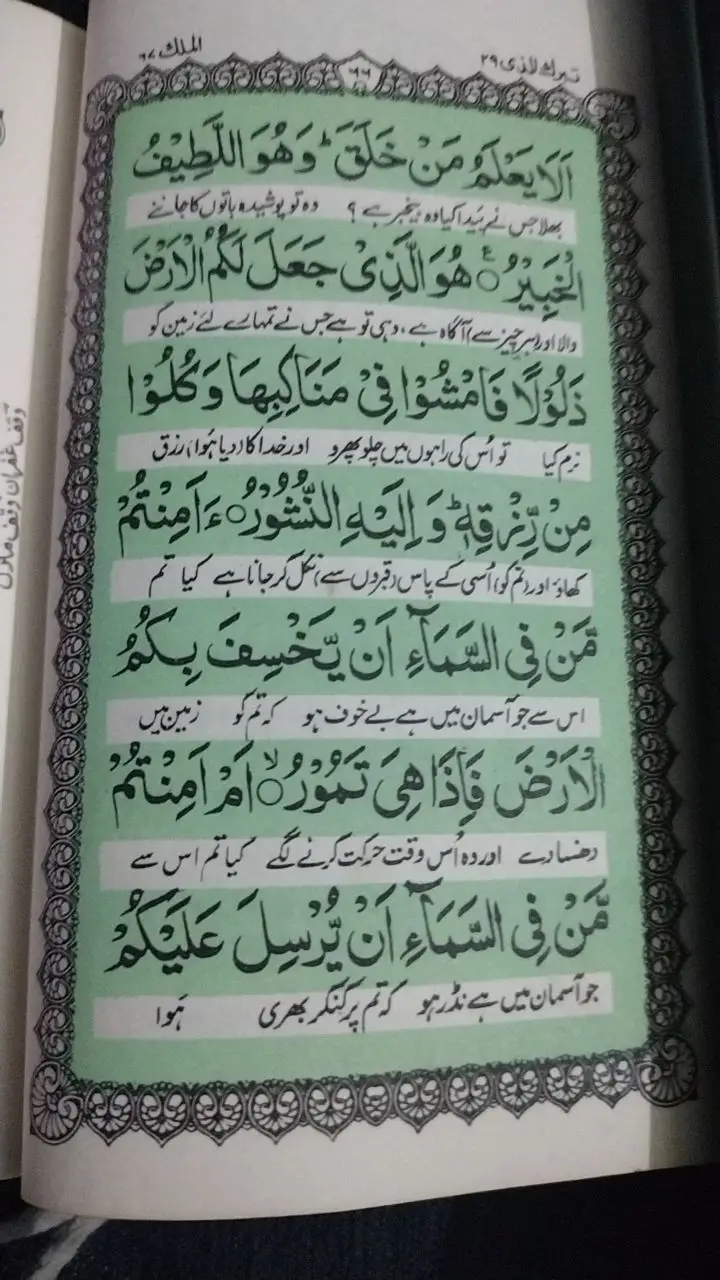 تبارك الذی ۲۹
۶۶
الملك ۶۷
اَلَا يَعْلَمُ مَنْ خَلَقَ ؕ وَهُوَ اللَّطِيْفُ
بھلا جس نے پیدا کیا وہ بیخبر ہے ؟ وہ تو پوشیدہ باتوں کا جاننے
الْخَبِيْرُ ۟ع هُوَ الَّذِىْ جَعَلَ لَكُمُ الْاَرْضَ
والا اور (ہر چیز سے) آگاہ ہے ، وہی تو ہے جس نے تمہارے لئے زمین کو
ذَلُوْلًا فَامْشُوْا فِىْ مَنَاكِبِهَا وَكُلُوْا
نرم کیا تو اُس کی راہوں میں چلو پھرو اور خدا کا (دیا ہُوا) رزق
مِنْ رِّزْقِهٖ ؕ وَاِلَيْهِ النُّشُوْرُ ○ ءَاَمِنْتُمْ
کھاؤ اور (تم کو) اُسی کے پاس (قبروں سے) نکل کر جانا ہے کیا تم
مَّنْ فِى السَّمَآءِ اَنْ يَّخْسِفَ بِكُمُ
اس سے جو آسمان میں ہے بے خوف ہو کہ تم کو زمین میں
الْاَرْضَ فَاِذَا هِىَ تَمُوْرُ ○ۙ اَمْ اَمِنْتُمْ
دھنسا دے اور وہ اُس وقت حرکت کرنے لگے کیا تم اس سے
مَّنْ فِى السَّمَآءِ اَنْ يُّرْسِلَ عَلَيْكُمْ
جو آسمان میں ہے نڈر ہو کہ تم پر کنکر بھری ہَوا